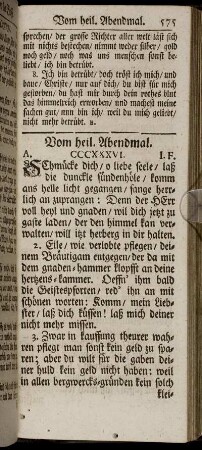 Vom heil. Abendmal. 575
sprechen/ der grosse Richter aller welt läst sich
mit nichts bestechen/ nimmt weder silber/ gold
noch geld/ noch was uns menschen sonst be-
liebt, ich bin betrübt.
8. Ich bin betrübt/ doch tröst ich mich/ und
baue/ Christe/ nur auf dich/ du bist für mich
gestorben/ du hast mir durch dein rothes blut
das himmelreich erworben/ und machest meine
sachen gut, nun bin ich/ weil du mich geliebt/
nicht mehr betrübt.
Vom heil. Abendmal.
A. CCCXXXVI. I. F.
Schmücke dich/ o liebe seele/ laß
die dunckle sündenhöle/ komm
ans helle licht gegangen/ fange herr-
lich an zuprangen: Denn der HErr
voll heyl und gnaden/ wil dich jetzt zu
gaste laden/ der den himmel kan ver-
walten/ will itzt herberg in dir halten.
2. Eile/ wie verlobte pflegen/ dei-
nem Bräutigam entgegen/ der da mit
dem gnaden-hammer klopfft an deine
hertzens-kammer. Oeffn' ihm bald
die Geistespforten/ red' ihn an mit
schönen worten: Komm/ mein Lieb-
ster/ laß dich küssen! laß mich deiner
nicht mehr missen.
3. Zwar in kauffung theurer wah-
ren pflegt man sonst kein geld zu spa-
ren; aber du wilt für die gaben dei-
ner huld kein geld nicht haben: weil
in allen bergwercks-gründen kein solch
klei-